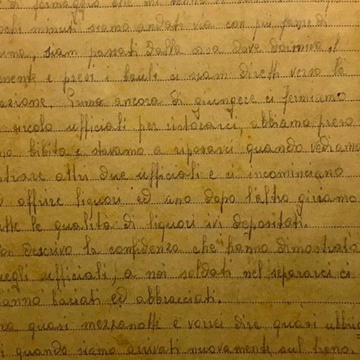 di formaggio che mi
pochi minuti siamo andati via con più fame di
siam passati dalla casa dove dormiva il
tenente e presi i bauli ci siam diretti verso la
stazione. Prima ancora di giungere ci fermiamo
circolo ufficiali per ristorarci, abbiamo preso
bibita e stavamo a riposarci, quando vediamo
entrare altri due ufficiali e ci incominciano
offrire liquori ed uno dopo l'altro giriamo
tutte le qualità di liquori ivi depositati.
descrivo la confidenza che hanno dimostrato
quegli ufficiali, a noi soldati nel separarci ci
hanno baciati ed abbracciati.
quasi mezzanotte e vorrei dire quasi ubbria
quando siamo arrivati nuovamente sul treno